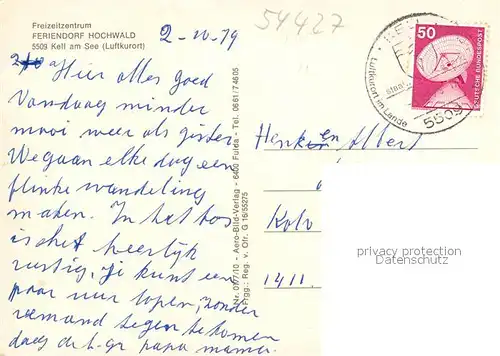 Freizeitzentrum
FERIENDORF HOCHWALD
5509 Kell am See (Luftkurort)
2-10-79
54427
50
DEUTSCHE BUNDESPOST
Luftkurort im Lande
5509
Hier alles goed
Vandaag minder
mooi weer als gister
We gaan elke dag een
flinke wandeling
maken. In het bos
is het heerlijk
rustig, je kunt een
paar uur lopen, zonder
iemand tegen te komen
dag d.h. gr papa mama.
Henk en Albert
1411
Nr. 097/10 - Aero-Bild-Verlag - 6400 Fulda - Tel. 0661/74605
Frgg.: Reg. v. Ofr. G 16/55275
privacy protection
Datenschutz